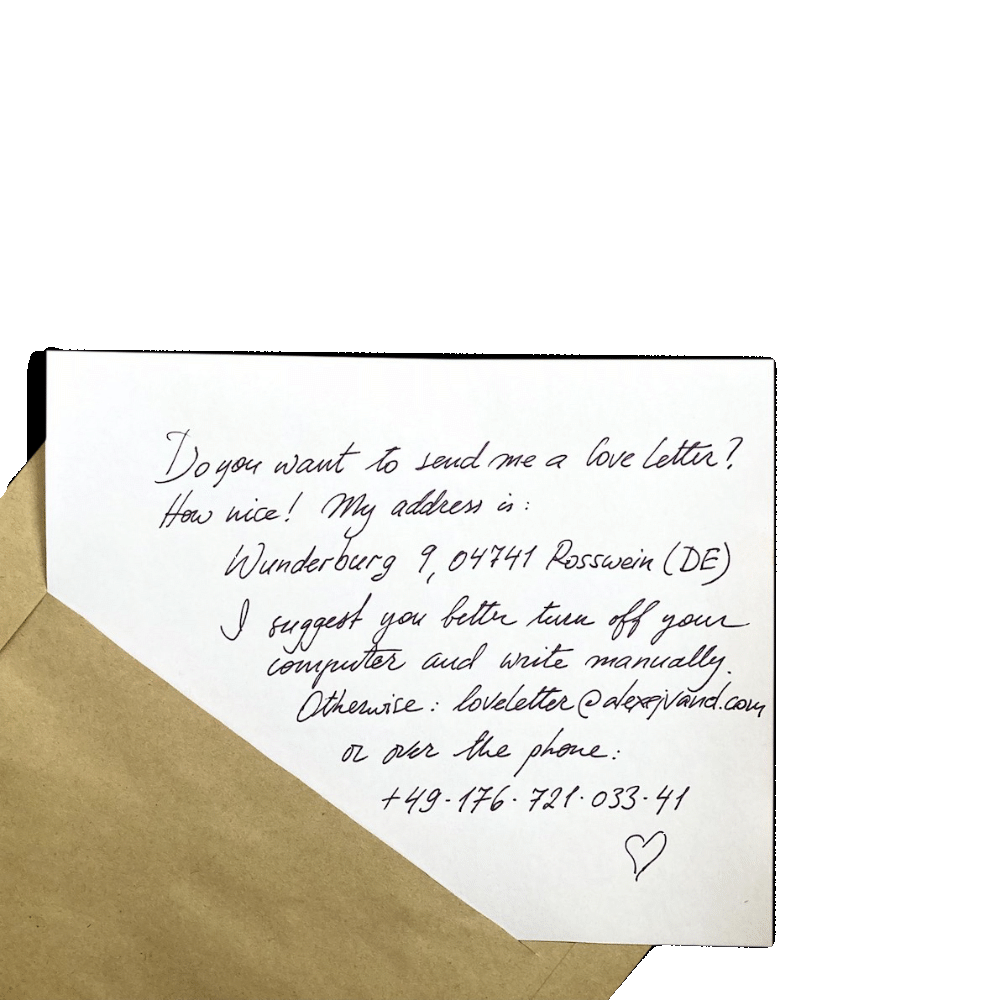 Do you want to send me a love letter?
How nice! My address is:
Wunderburg 9, 04741 Rosswein (DE)
I suggest you better turn off your
computer and write manually.
Otherwise: loveletter@alexejvand.com
or over the phone:
+49-176-721-033-41